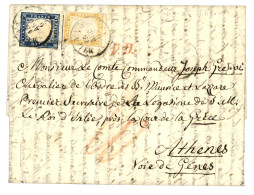 P.D.
A Monsieur Le Comte Commandeur Joseph
Chevalier de l'Ordre des Sts Maurice et Lazare
Premier de la Légation de S.M.
Le Roi d'Italie près la Cour de la Grèce
Athènes
Voie de Gênes